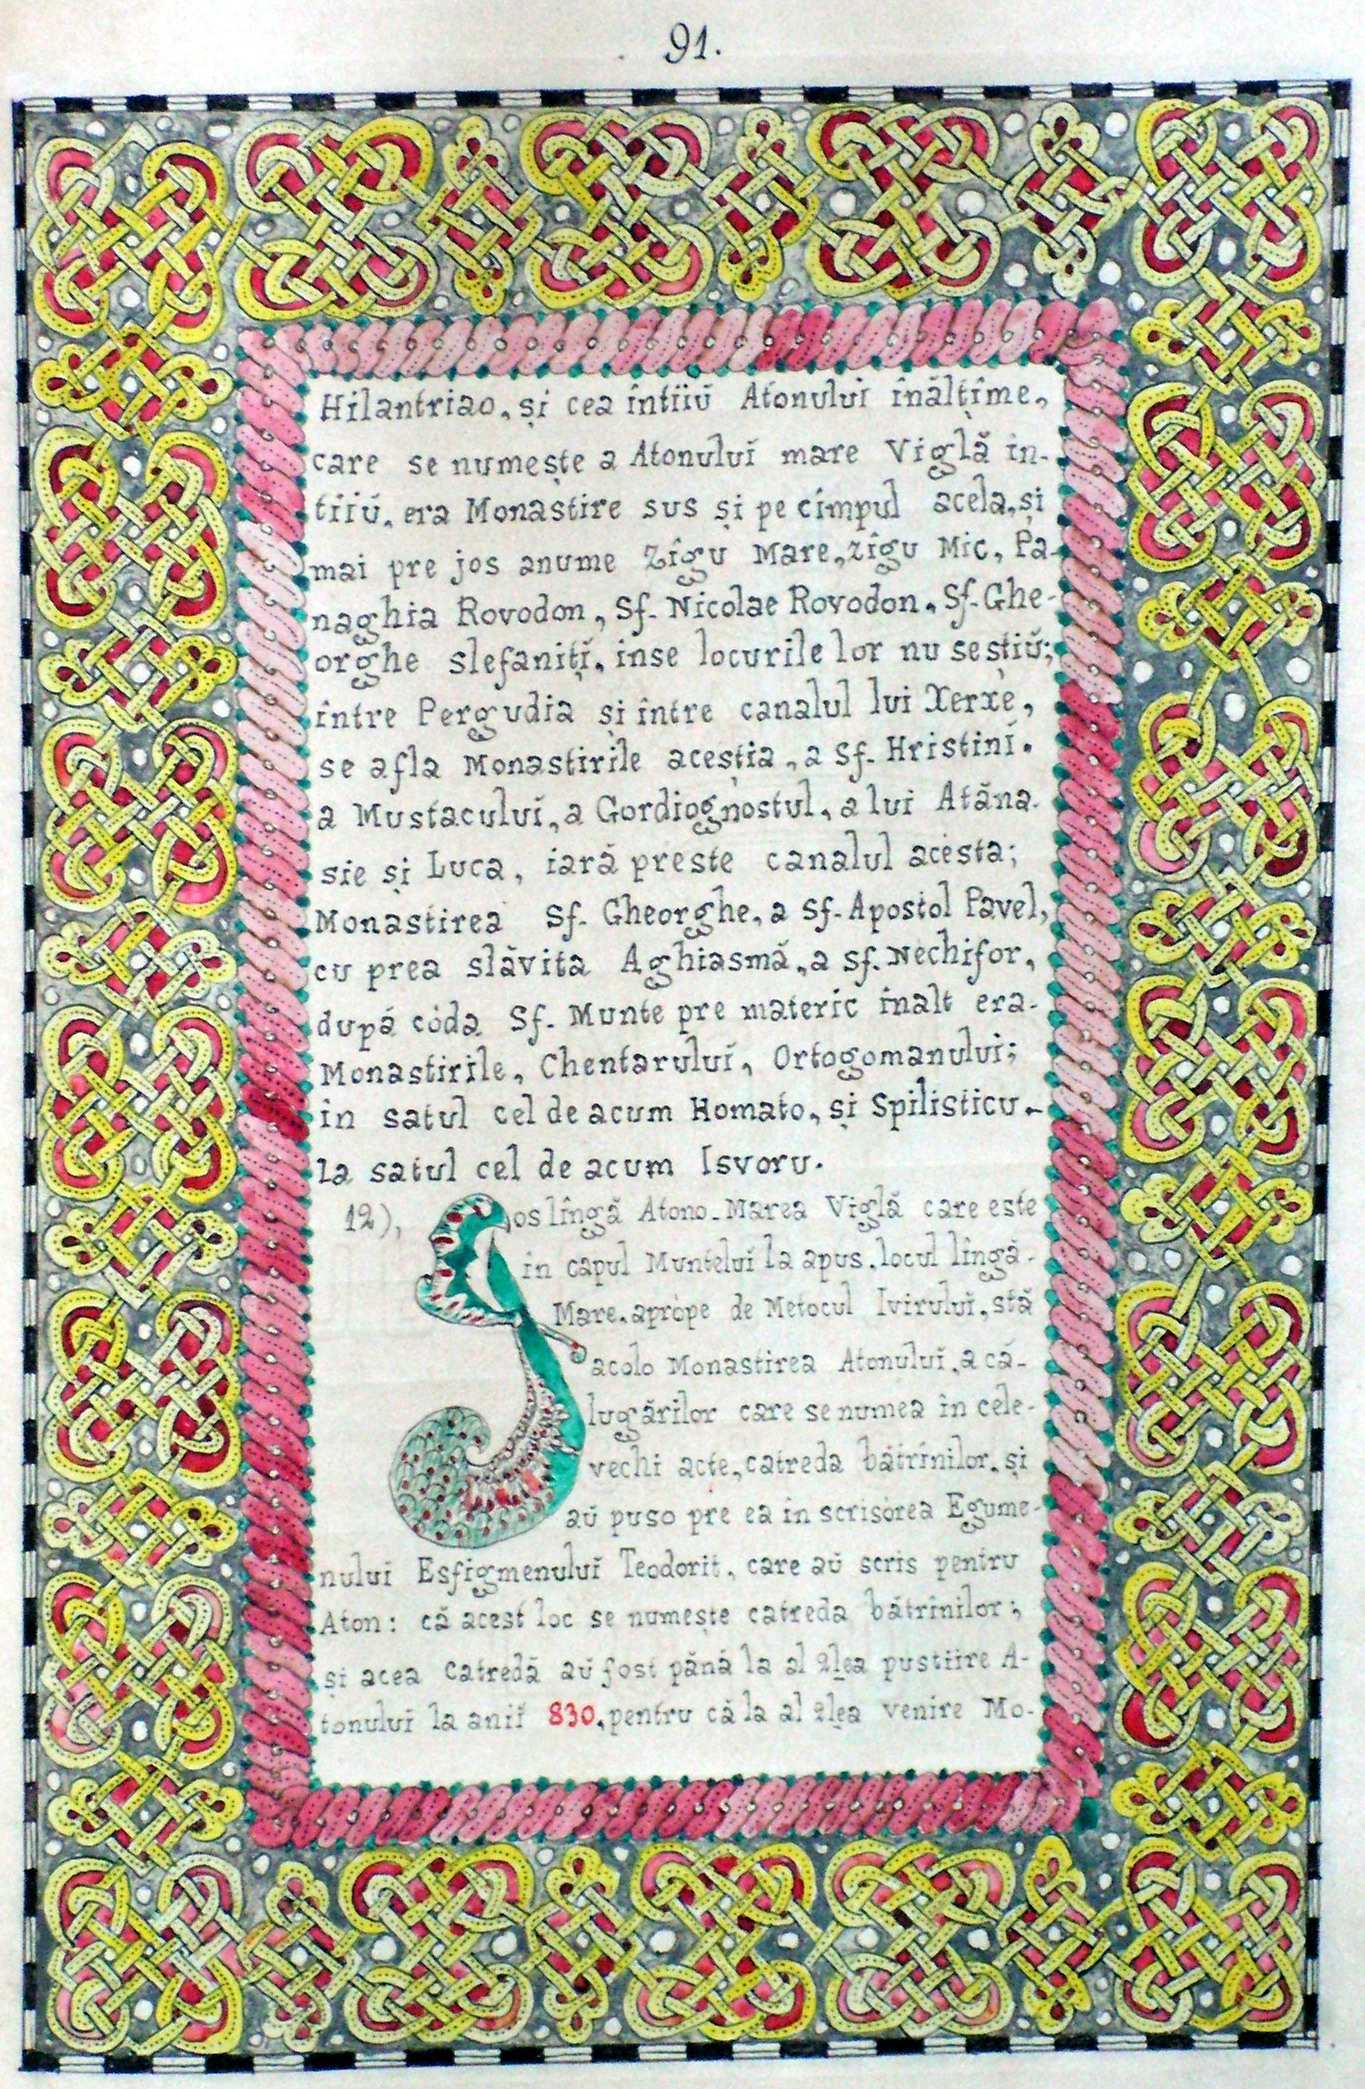 91.
Hilantriao, și cea întîiŭ Atonuluĭ înălțîme,
care se numește a Atonuluĭ mare Viglă in-
tîiŭ, era Monastire sus și pe cîmpul acela, și
mai pre jos anume Zîgu Mare, zîgu Mic, Pa-
naghia Rovodon, Sf. Nicolae Rovodon, Sf. Ghe-
orghe slefanițĭ, inse locurile lor nu se știŭ;
între Pergudia și între canalul lui Xerxe,
se afla Monastirile aceștia, a Sf. Hristinĭ.
a Mustaculuĭ, a Gordiognostul, a lui Atăna-
sie și Luca, iară preste canalul acésta;
Monastirea Sf. Gheorghe, a Sf. Apostol Pavel,
cu prea slăvita Aghiasmă, a sf. Nechifor,
după códa Sf. Munte pre materic înalt era-
Monastirile, Chentaruluĭ, Ortogomanuluĭ;
în satul cel de acum Homato, și Spilisticu-
La satul cel de acum Isvoru.
12), Jos lîngă Atono-Marea Viglă care este
in capul Munteluĭ la apus, locul lîngă-
Mare, aprópe de Metocul Iviruluĭ, stă
acolo Monastirea Atonuluĭ, a că-
lugărilor care se numea in cele-
vechi acte, catreda bătrînilor, și
aŭ puso pre ea in scrisórea Egume-
nului Esfigmenuluĭ Teodorit, care aŭ scris pentru
Aton: că acest loc se numește catreda bătrînilor;
și acea Catredă aŭ fost până la al 2lea pustiire A-
tonuluĭ la aniĭ 830, pentru că la al 2lea venire Mo-